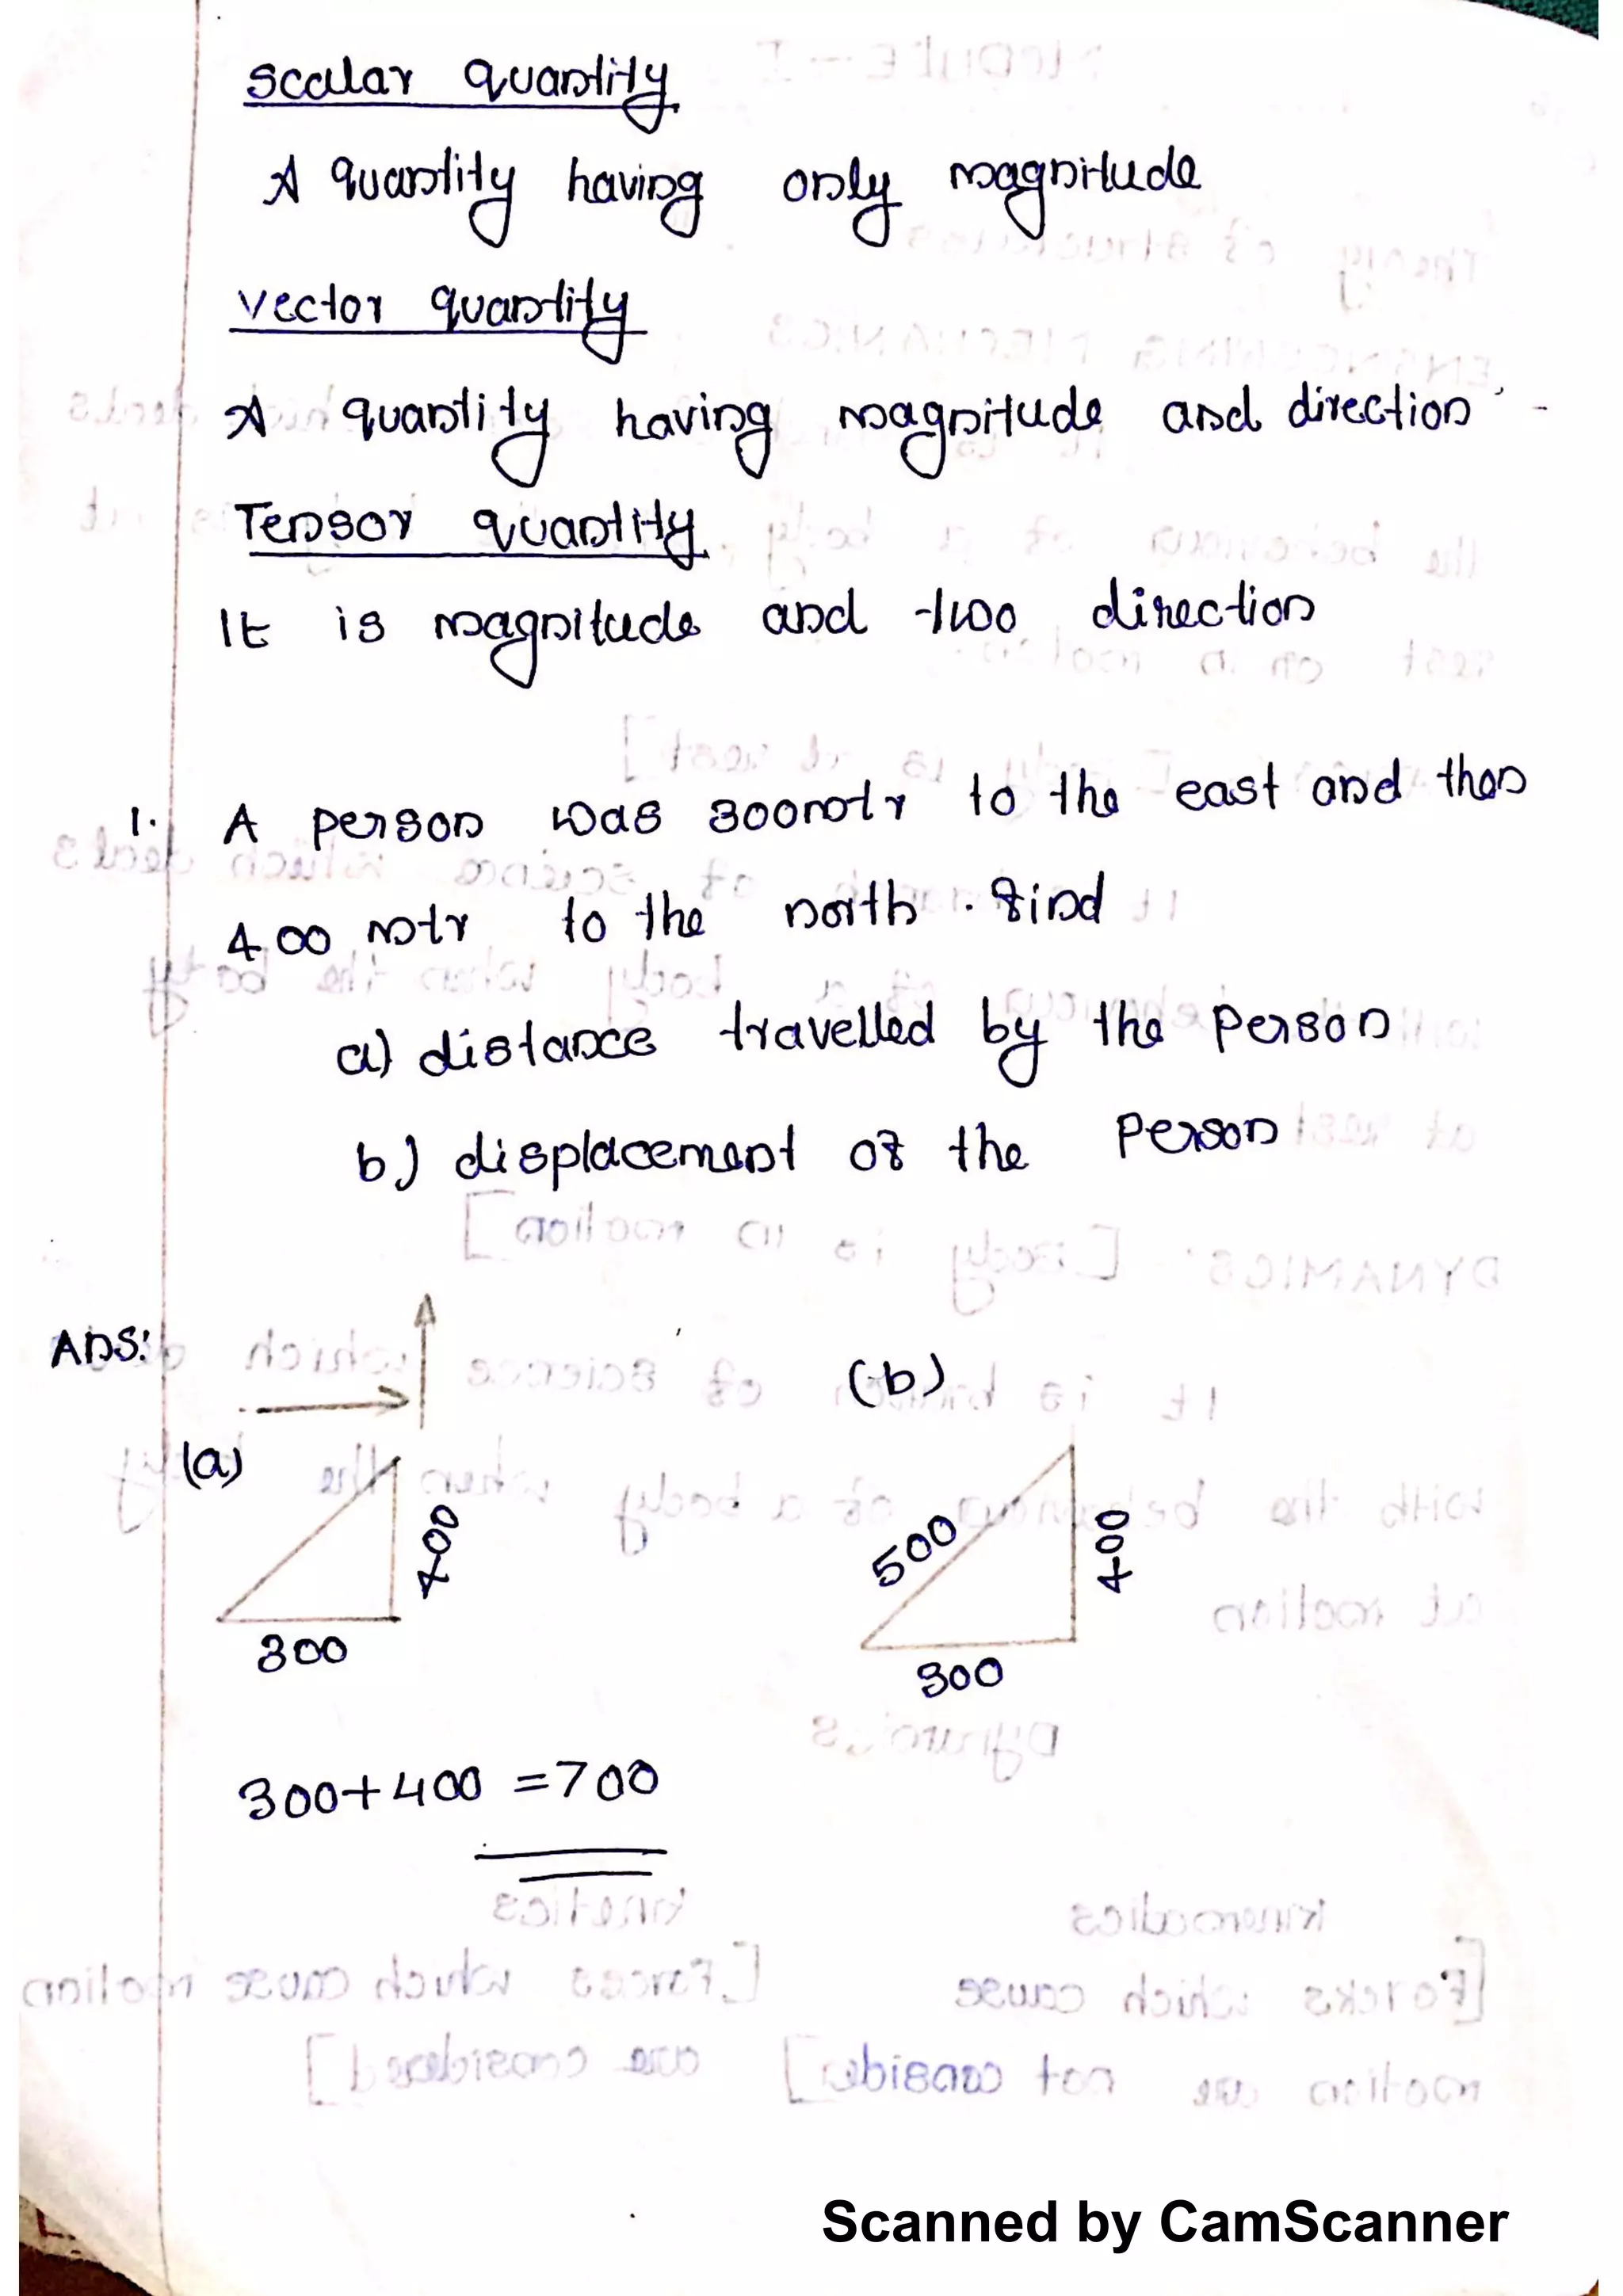 Scalar quantity
A quantity having only magnitude
Vector quantity
A quantity having magnitude and direction
Tensor quantity
It is magnitude and two direction
1. A person was 300mtr to the east and then
400 mtr to the north. find
a) distance travelled by the person
b) displacement of the person
Ans:
(a)
400
300
(b)
500
400
300
300+400 =700
Scanned by CamScanner